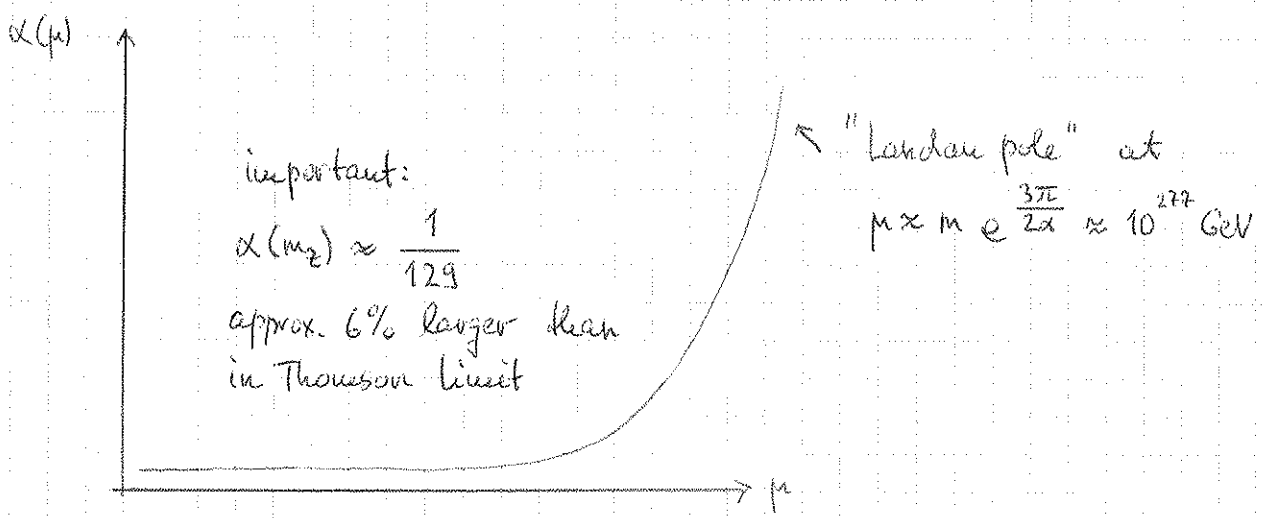 α(μ)
important:
α(m_z) ≈ 1/129
approx. 6% larger than
in Thomson limit
"Landau pole" at
μ ≈ m e^{3π/2α} ≈ 10^{277} GeV
μ